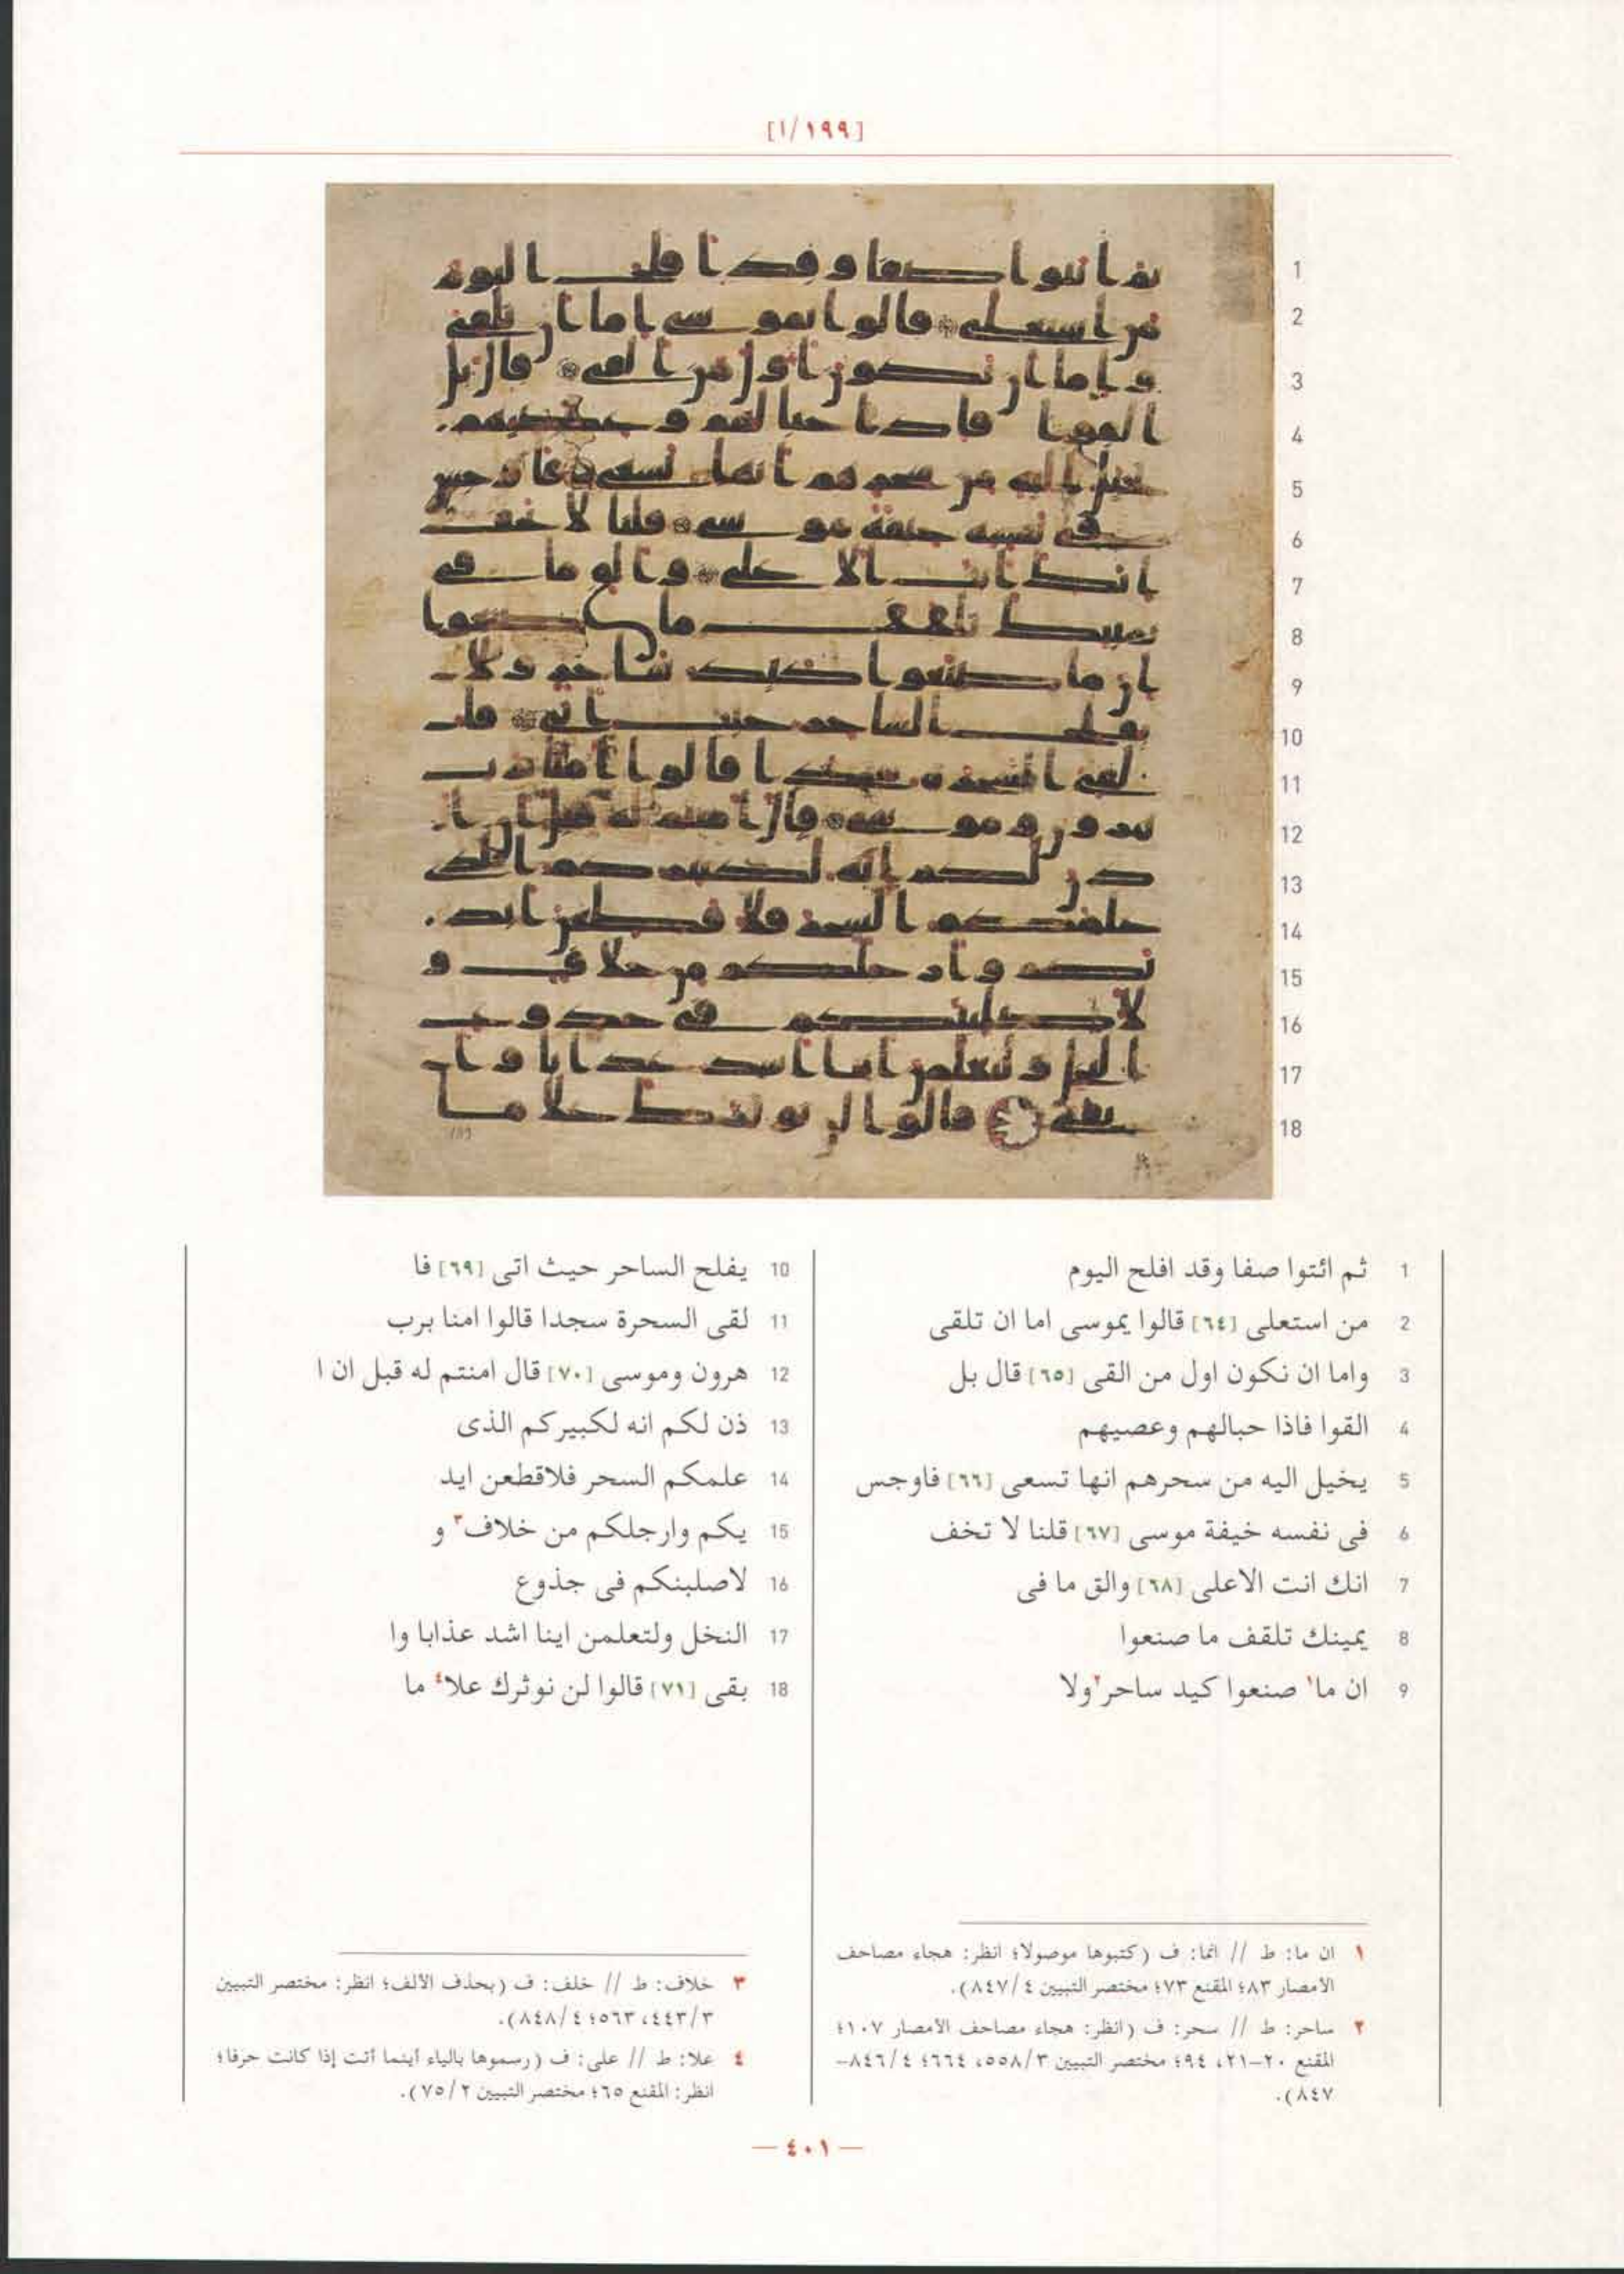 [١٩٩/ا]
1 ثم ائتوا صفا وقد افلح اليوم
2 من استعلى [٦٤] قالوا يموسى اما ان تلقى
3 واما ان نكون اول من القى [٦٥] قال بل
4 القوا فاذا حبالهم وعصيهم
5 يخيل اليه من سحرهم انها تسعى [٦٦] فاوجس
6 فى نفسه خيفة موسى [٦٧] قلنا لا تخف
7 انك انت الاعلى [٦٨] والق ما فى
8 يمينك تلقف ما صنعوا
9 ان ما١ صنعوا كيد ساحر٢ ولا
10 يفلح الساحر حيث اتى [٦٩] فا
11 لقى السحرة سجدا قالوا امنا برب
12 هرون وموسى [٧٠] قال امنتم له قبل ان ا
13 ذن لكم انه لكبيركم الذى
14 علمكم السحر فلاقطعن ايد
15 يكم وارجلكم من خلاف٣ و
16 لاصلبنكم فى جذوع
17 النخل ولتعلمن اينا اشد عذابا وا
18 بقى [٧١] قالوا لن نوثرك علا٤ ما
١ ان ما: ط // انما: ف (كتبوها موصولا؛ انظر: هجاء مصاحف
الأمصار ٨٣؛ المقنع ٧٣؛ مختصر التبيين ٨٤٧/٤).
٢ ساحر: ط // سحر: ف (انظر: هجاء مصاحف الأمصار ١٠٧؛
المقنع ٢٠-٢١، ٩٤؛ مختصر التبيين ٥٥٨/٣، ٦٦٤؛ ٨٤٦/٤-
٨٤٧).
٣ خلاف: ط // خلف: ف (بحذف الألف؛ انظر: مختصر التبيين
٤٤٣/٣، ٥٦٣؛ ٨٤٨/٤).
٤ علا: ط // على: ف (رسموها بالياء أينما أتت إذا كانت حرفا؛
انظر: المقنع ٦٥؛ مختصر التبيين ٧٥/٢).
— ٤٠١ —